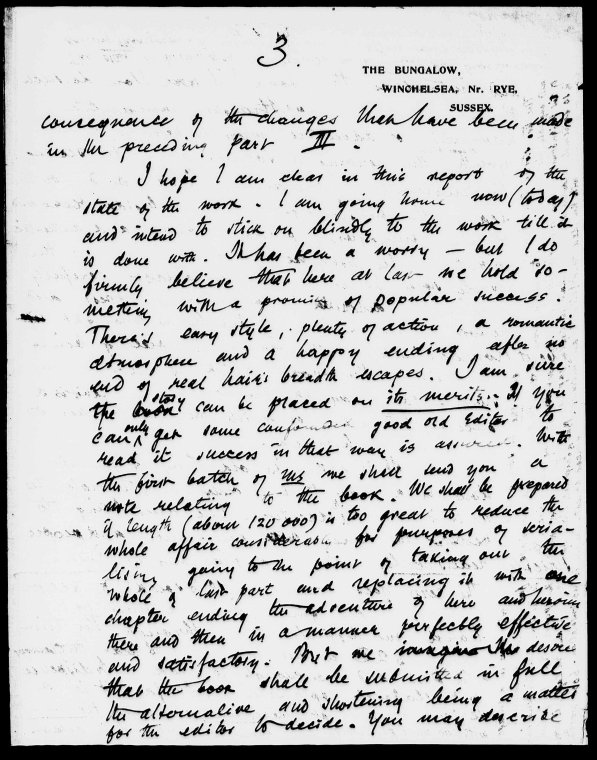 3.
THE BUNGALOW,
WINCHELSEA, Nr. RYE,
SUSSEX.
consequence of the changes that have been made
in the preceding part III.
I hope I am clear in this report of the
state of the work. I am going home now (today)
and intend to stick on blindly to the work till it
is done with. It has been a worry – but I do
firmly believe that here at last we hold so-
mething with a promise of popular success.
There's easy style, plenty of action, a romantic
atmosphere and a happy ending after no
end of real hair's breadth escapes. I am sure
the story can be placed on its merits. If you
can only get some confounded good old Editor to
read it success in that way is assured. With
the first batch of MS we shall send you a
note relating to the book. We shall be prepared
if length (about 120 000) is too great to reduce the
whole affair considerably for purposes of seria-
lising going to the point of taking out the
whole of last part and replacing it with one
chapter ending the adventure of hero and heroine
there and then in a manner perfectly effective
and satisfactory. But we desire
that the book shall be submitted in full
the alternative and shortening being a matter
for the editor to decide. You may describe